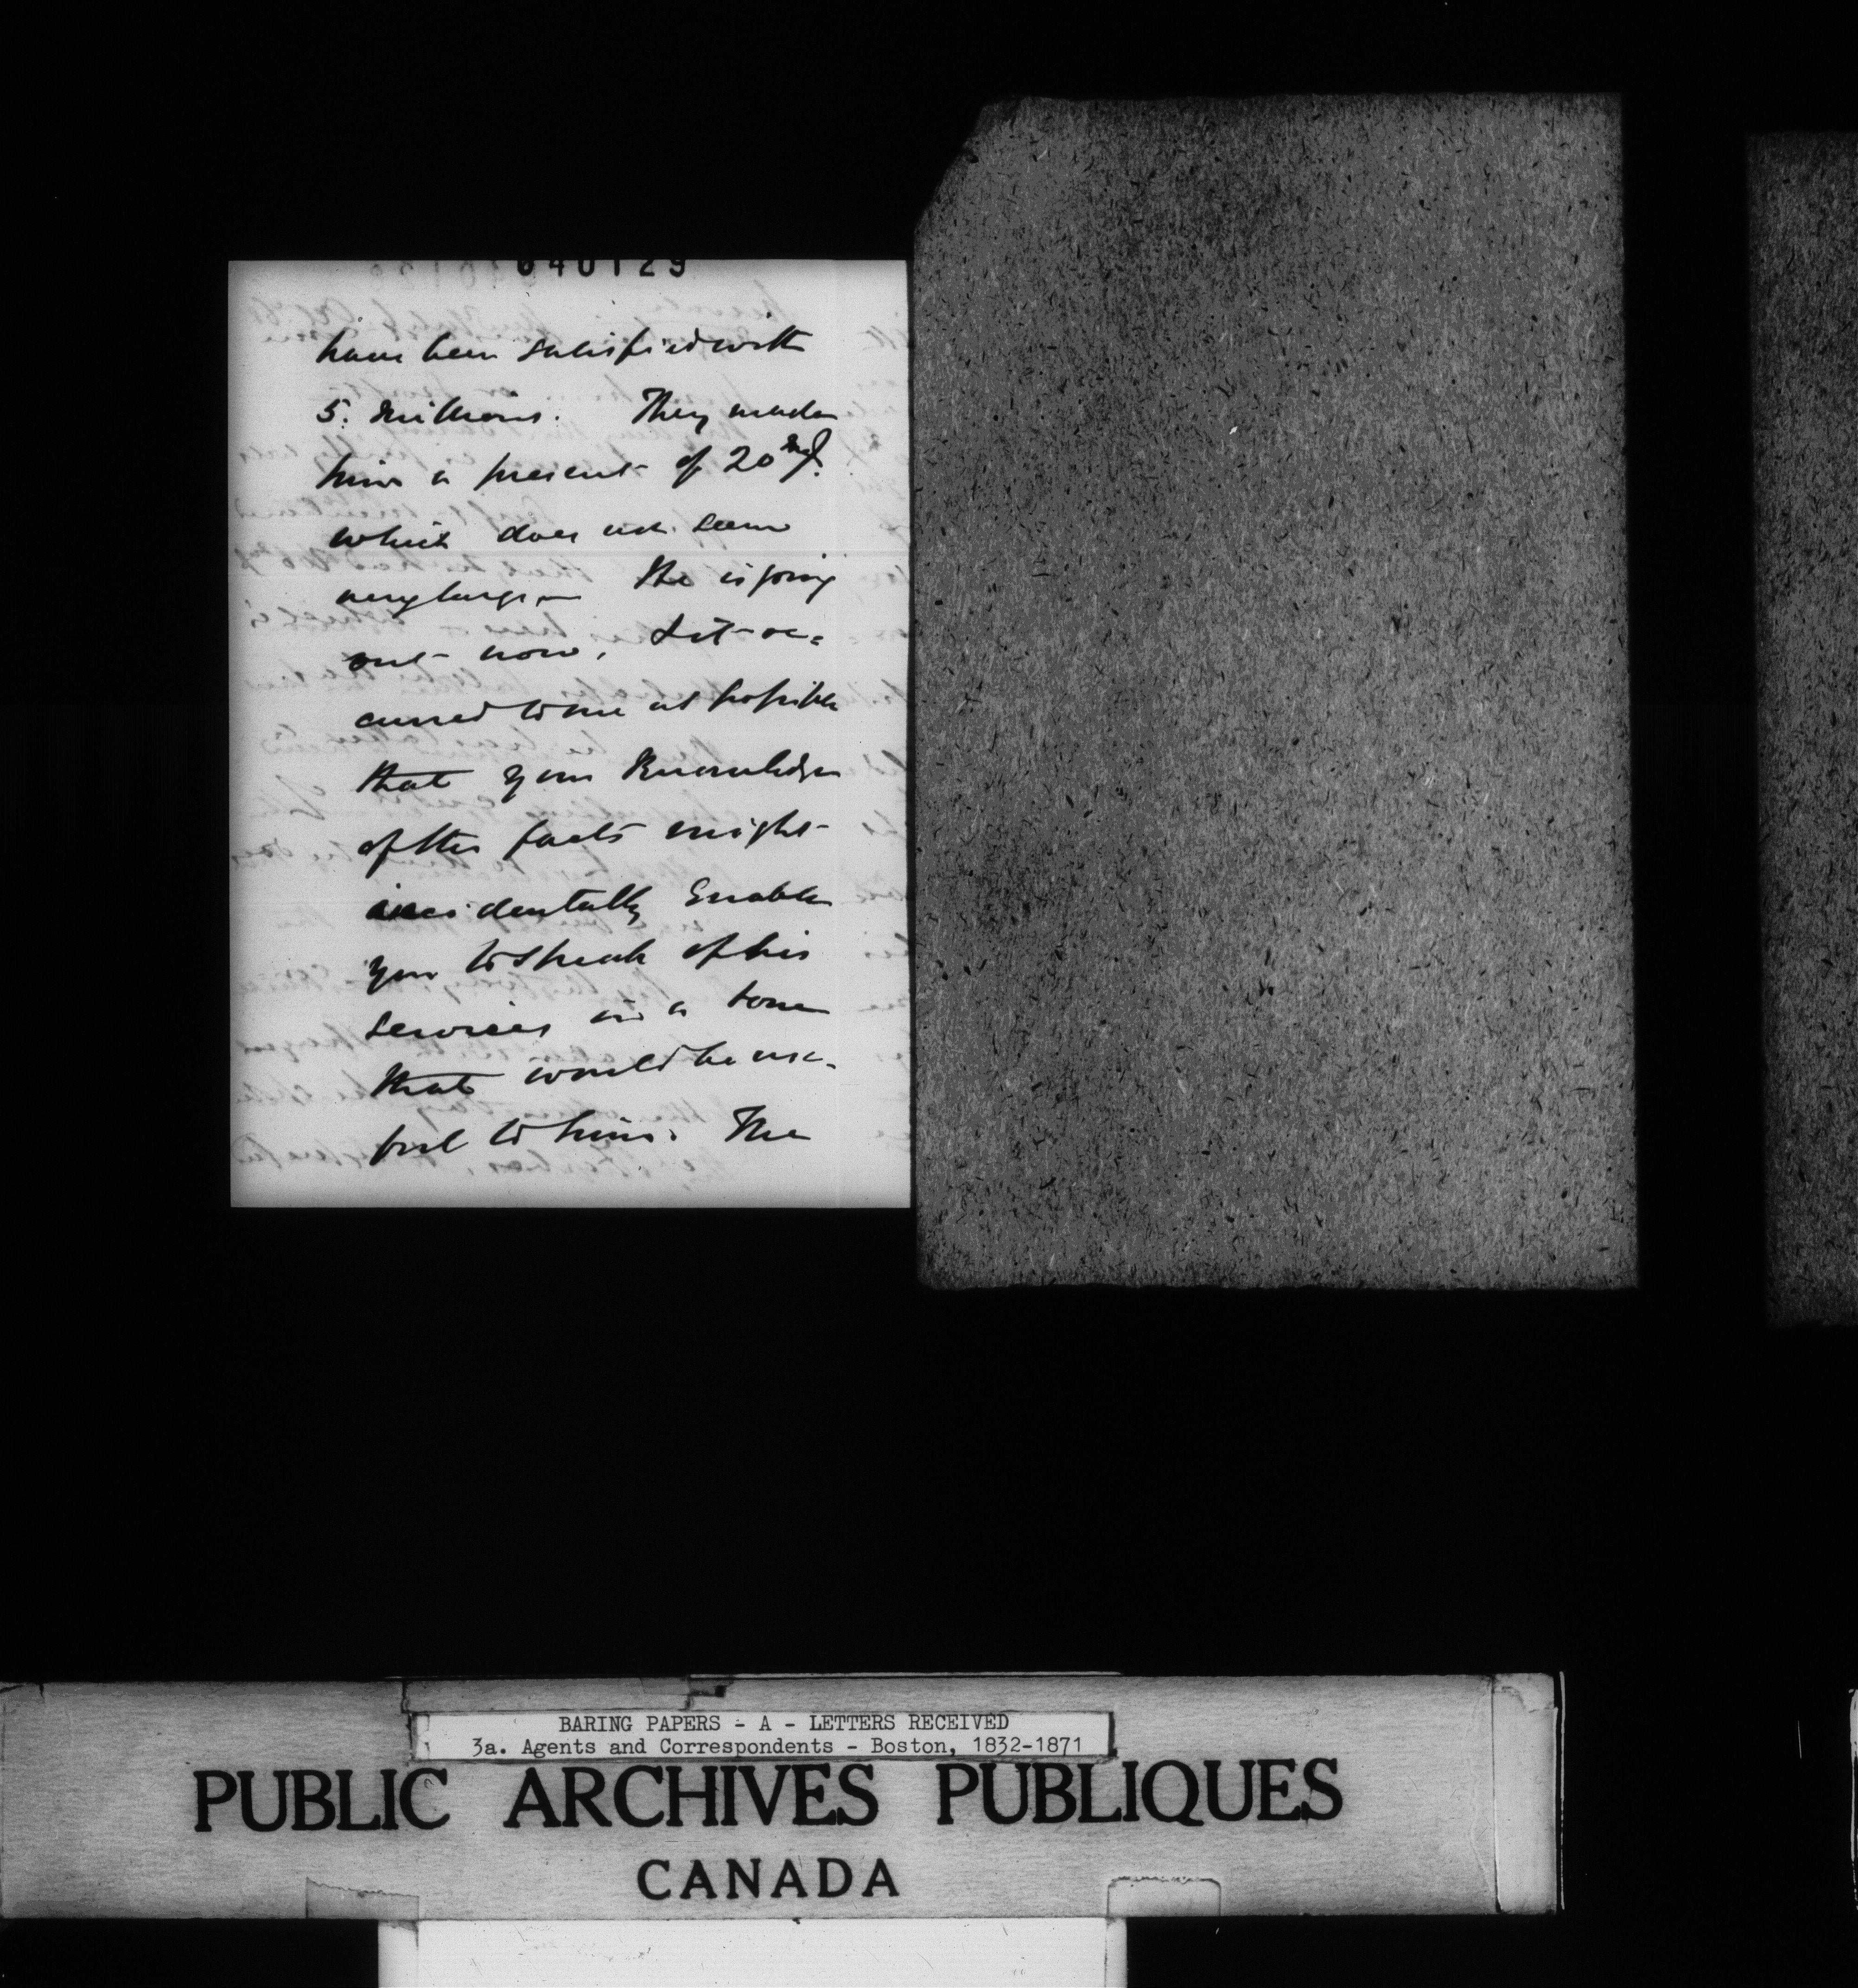 040129
have been satisfied with
5. Millions. They made
him a present of 20
which does not seem
very large — He is going
out now, & it oc=
curred to me as possible
that your Knowledge
of the facts might
incidentally Enable
you to speak of his
services in a tone
that would be use-
ful to him. The
BARING PAPERS - A - LETTERS RECEIVED
3a. Agents and Correspondents - Boston, 1832-1871
PUBLIC ARCHIVES PUBLIQUES
CANADA